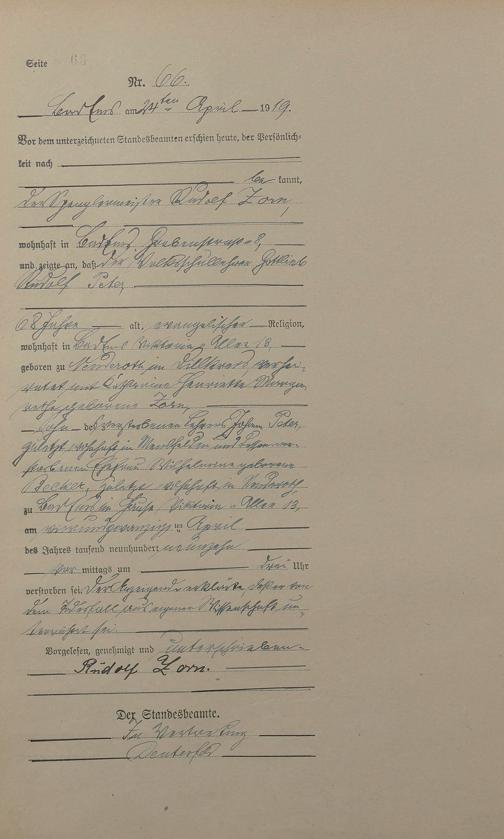 Seite 66
Nr. 66.
Bad Ems am 24ten April 1919.
Vor dem unterzeichneten Standesbeamten erschien heute, der Persönlich-
keit nach
be kannt,
der Spenglermeister Rudolf Zorn,
wohnhaft in Bad Ems, Grabenstraße
und zeigte an, daß der Volksschullehrer Gottlieb
Rudolf Peter,
68 Jahre alt, evangelischer Religion,
wohnhaft in Bad Ems Viktoria-Allee 13,
geboren zu im Dillkreis, verhei-
ratet mit Katharine Henriette Marga-
rethe geborene Zorn,
Sohn des verstorbenen Lehrers Johann Peter,
zuletzt wohnhaft in und dessen ver-
storbenen Ehefrau Wilhelmine geborene
Becker, zuletzt wohnhaft in
zu Bad Ems im Hause Viktoria-Allee 13,
am vierundzwanzigsten April
des Jahres tausend neunhundert neunzehn
vor mittags um drei Uhr
verstorben sei. Der Anzeigende erklärte, daß er von
dem Sterbfall aus eigener Wissenschaft un-
terrichtet sei.
Vorgelesen, genehmigt und unterschrieben
Rudolf Zorn.
Der Standesbeamte.
In Vertretung